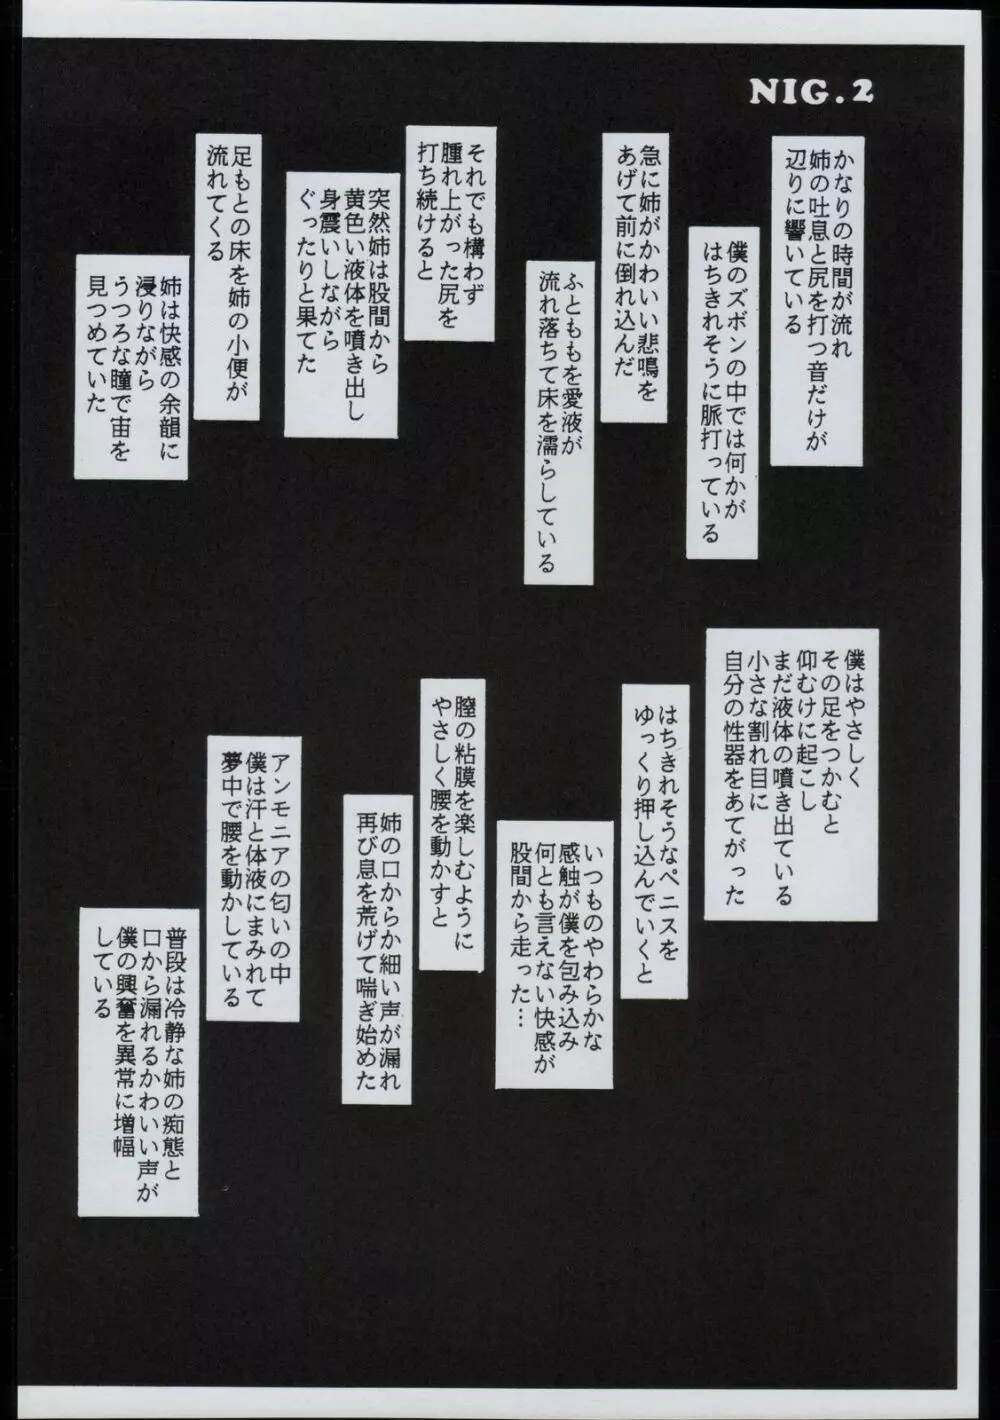 NIG.2
かなりの時間が流れ
姉の吐息と尻を打つ音だけが
辺りに響いている
僕のズボンの中では何かが
はちきれそうに脈打っている
急に姉がかわいい悲鳴を
あげて前に倒れ込んだ
ふとももを愛液が
流れ落ちて床を濡らしている
それでも構わず
腫れ上がった尻を
打ち続けると
突然姉は股間から
黄色い液体を噴き出し
身震いしながら
ぐったりと果てた
足もとの床を姉の小便が
流れてくる
姉は快感の余韻に
浸りながら
うつろな瞳で宙を
見つめていた
僕はやさしく
その足をつかむと
仰むけに起こし
まだ液体の噴き出ている
小さな割れ目に
自分の性器をあてがった
はちきれそうなペニスを
ゆっくり押し込んでいくと
いつものやわらかな
感触が僕を包み込み
何とも言えない快感が
股間から走った…
膣の粘膜を楽しむように
やさしく腰を動かすと
姉の口からか細い声が漏れ
再び息を荒げて喘ぎ始めた
アンモニアの匂いの中
僕は汗と体液にまみれて
夢中で腰を動かしている
普段は冷静な姉の痴態と
口から漏れるかわいい声が
僕の興奮を異常に増幅
している